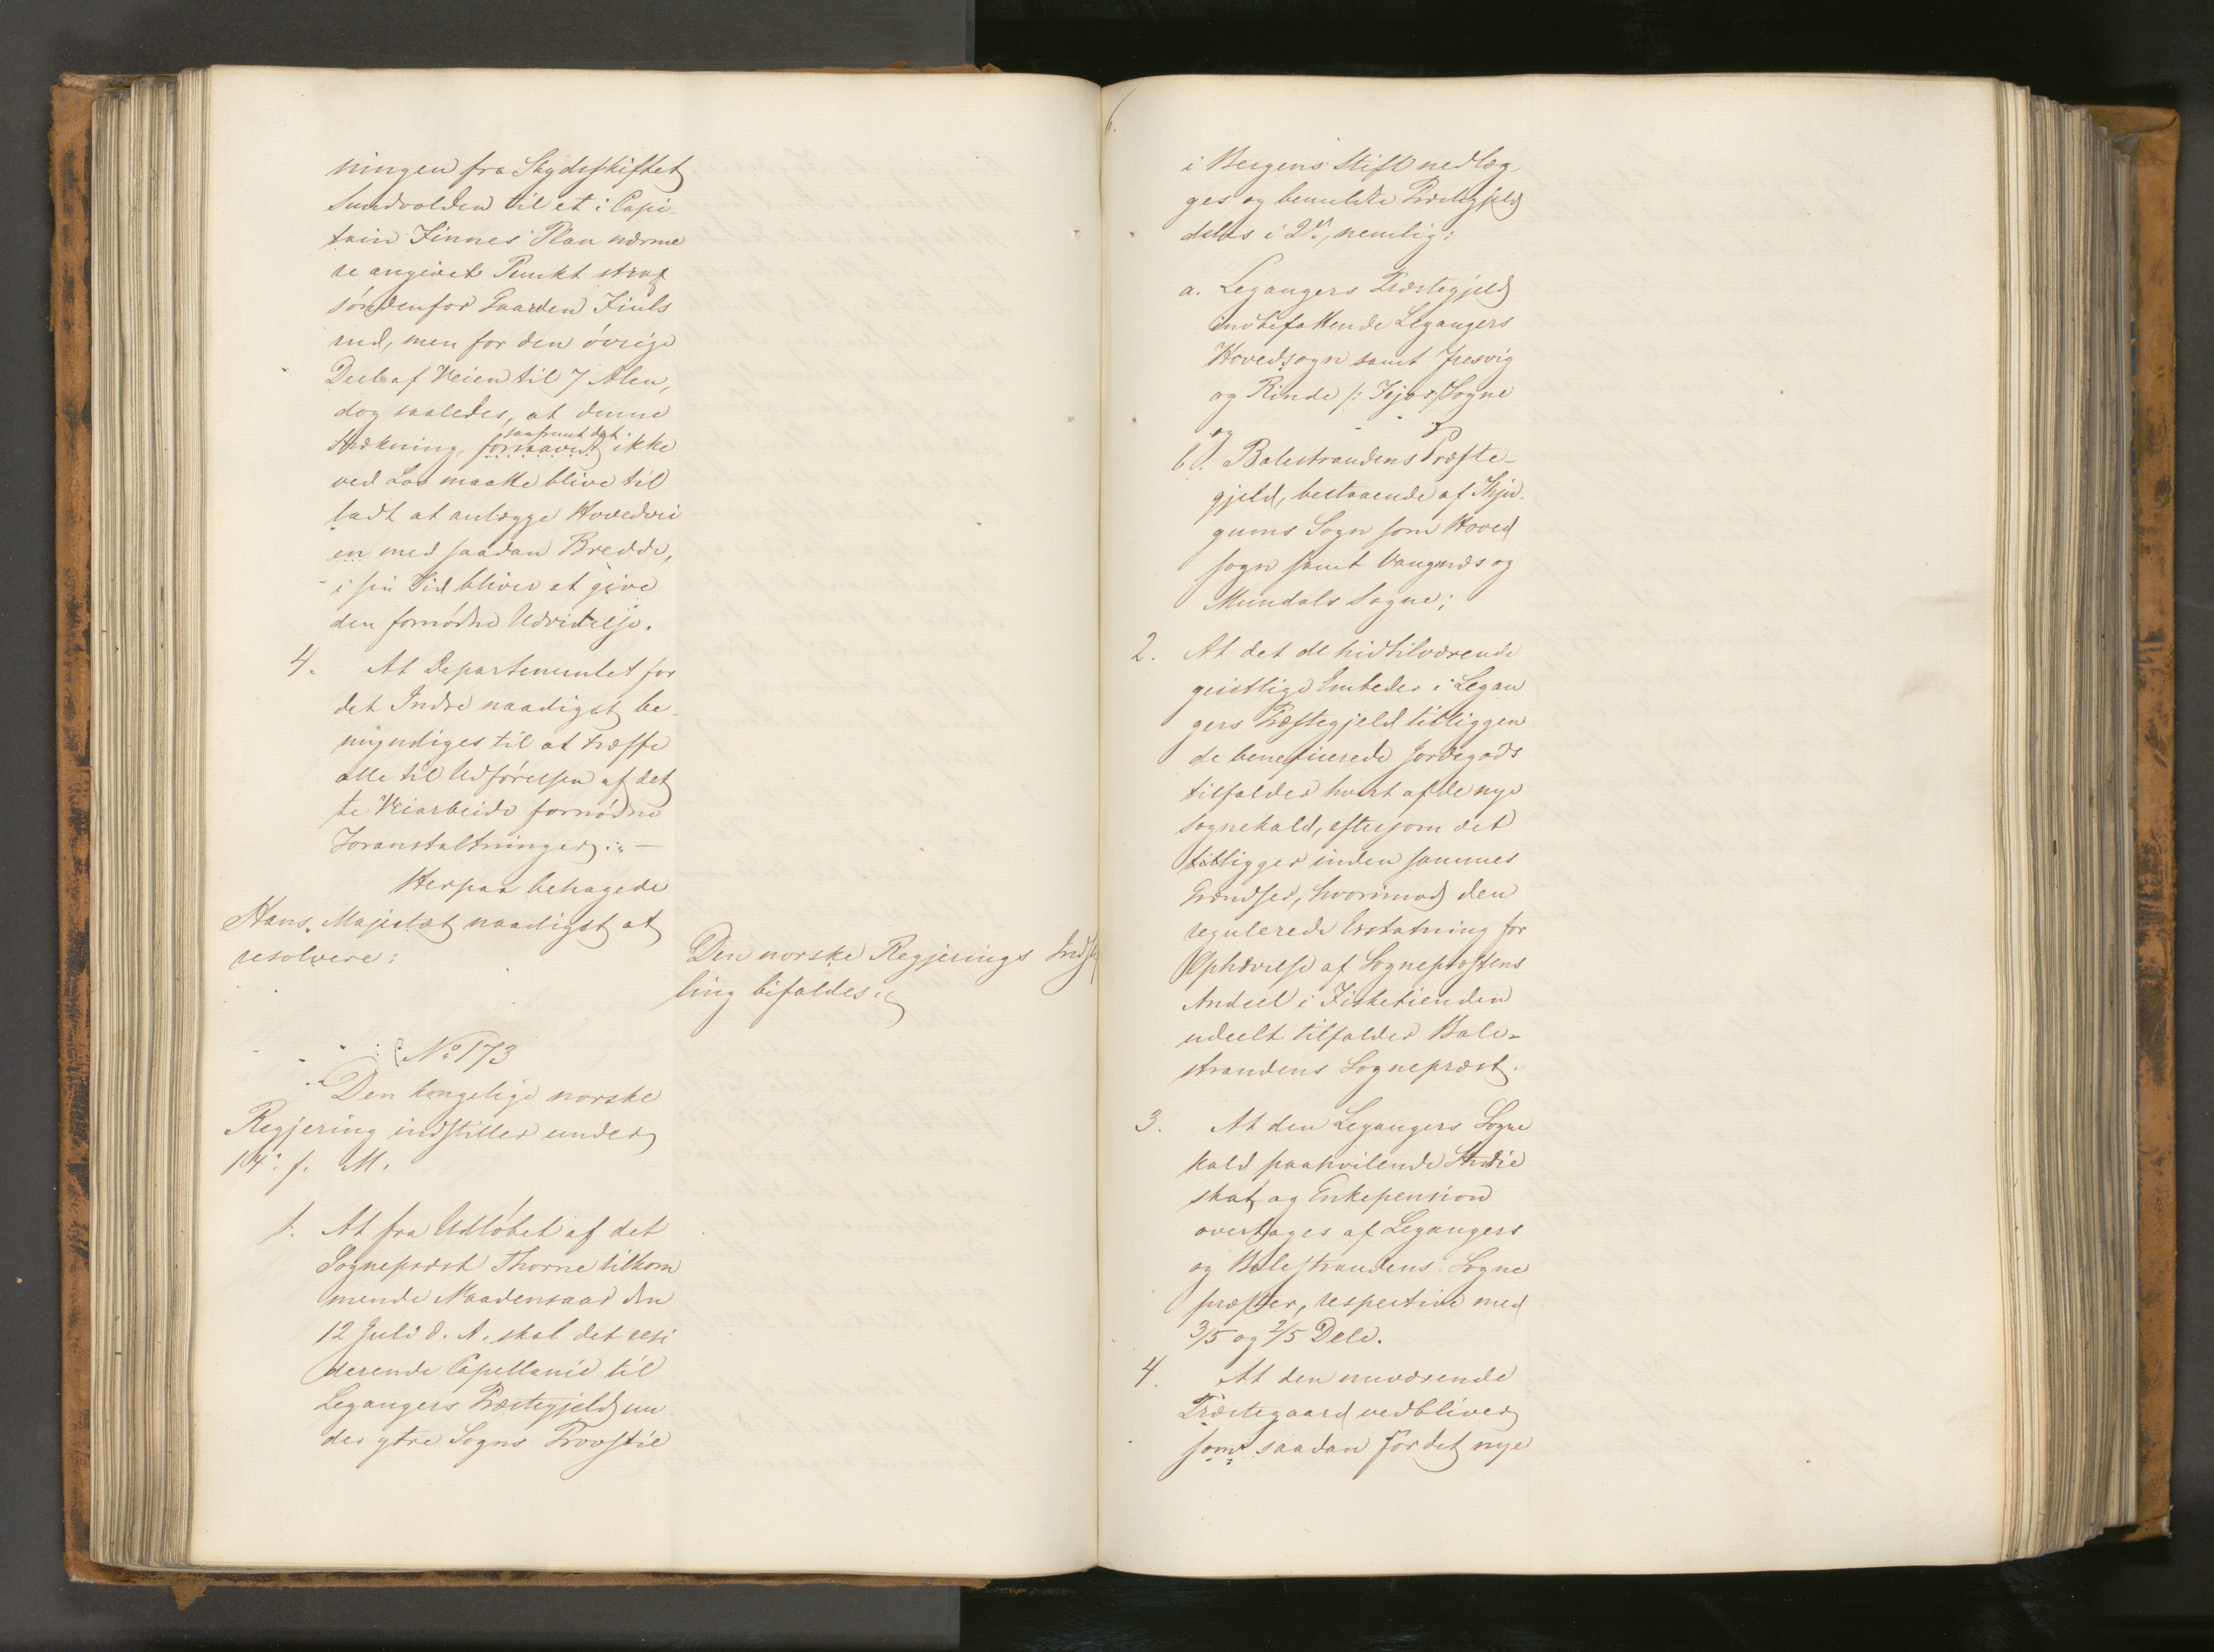 ningen fra Skydsskiftet
Sundvolden til et i Capi-
tain Finnes Plan nærme
re angivet Punkt strax
söndenfor Gaarden Fiuls
rud, men for den övrige
Deel af Veien til 7 Alen,
dog saaledes, at denne
Strækning, saafremt det ikke
ved Lov maatte blive til
ladt at anlægge Hovedvei
en med saadan Bredde,
i sin Tid bliver at give
den fornödne Udvidelse.
4. At Departementet for
det Indre naadigst be-
myndiges til at træffe
alle til Udförelsen af det
te Veiarbeide fornödne
Foranstaltninger."—
Herpaa behagede
Hans Majestæt naadigst at
resolvere:
Den norske Regjerings Indstil
ling bifaldes."
No 173
Den kongelige norske
Regjering indstiller under
14de f. M.
1. At fra Udlöbet af det
Sognepræst Thorne tilkom
mende Naadensaar den
12 Juli d. A. skal det resi
derende Capellanie til
Leganger Præstegjeld un
der ytre Sogns Provstie
i Bergens Stift nedlæg-
ges og bemeldte Præstegjeld
deles i 2de, nemlig:
a. Legangers Præstegjeld
indbefattende Legangers
Hovedsogn samt Fresvig
og Rinde /: Fejos/Sogne
og
b. Balestrandens Præste-
gjeld, bestaaende af Tju-
gums Sogn som Hoved
sogn samt Vangnæs og
Mundals Sogne;
2. At det de hidtilværende
geistlige Embeder i Legan
gers Præstegjeld tilliggen
de beneficerede Jordegods
tilfalder hvert af de nye
Sognekald, eftersom det
tilligger inden sammes
Grændser, hvorimod den
regulerede Erstatning for
Ophævelse af Sognepræstens
Andeel i Fisketienden
udeelt tilfalder Bale-
strandens Sognepræst.
3. At den Legangers Sogne
kald paahvilende Studie
skat og Enkepension
overtages af Legangers
og Balestrandens Sogne
præster, respective med
3/5 og 2/5 Dele.
4. At den nuværende
Præstegaard vedbliver
som saadan for det nye